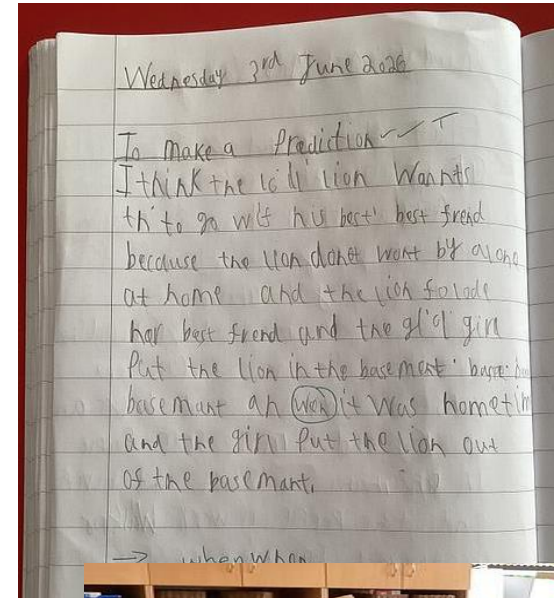 Wednesday 3rd June 2026
To make a Prediction
I think the lion Wannts
to go his best' best frend
because the lion donet wont by alone
at home and the lion folode
her best frend and the girl
Put the lion in the basemant
basemant an wen it was hometim
and the girl Put the lion out
of the basemant.
→ when when